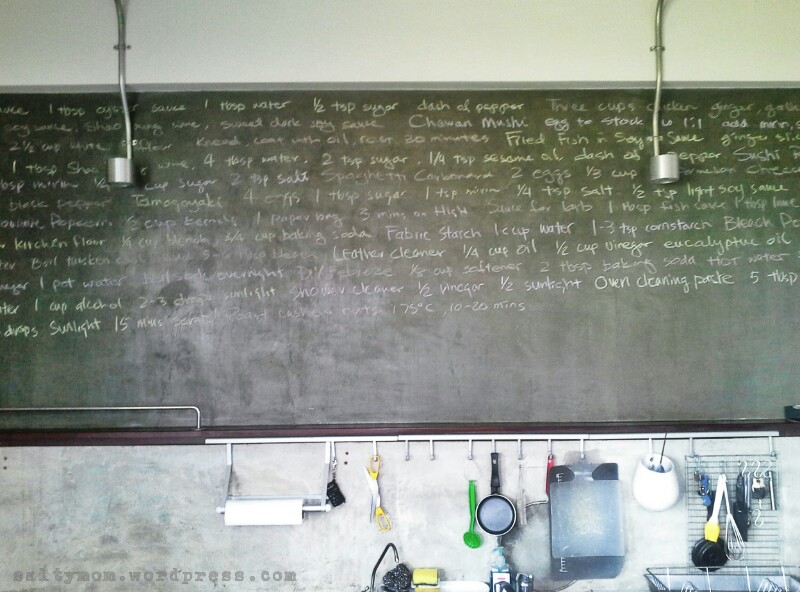 1 tbsp oyster sauce 1 tbsp water ½ tsp sugar dash of pepper Three cups chicken ginger,
soy sauce, wine, sweet dark soy sauce Chawan Mushi egg to stock is 1:1 add mirin,
2½ cup white flour Knead, coat with oil, rest 20 minutes Fried Fish in Soy Sauce ginger
1 tbsp wine, 4 tbsp water, 2 tsp sugar, ¼ tsp sesame oil dash of pepper Sushi
tbsp mirin cup sugar 2 tsp salt Spaghetti Carbonara 2 eggs ⅓ cup
black pepper Tamagoyaki 4 eggs 1 tbsp sugar 1 tsp mirin ¼ tsp salt ½ tsp light soy sauce
Popcorn cup kernels 1 paper bag 3 mins on High Sauce for 1 tbsp fish sauce 1 tbsp lime
Kitchen floor cup bleach cup baking soda Fabric Starch 1 cup water 1-3 tsp cornstarch Bleach
Boil Leather cleaner ¼ cup oil ½ cup vinegar eucalyptus oil
1 pot water overnight cup softener 2 tbsp baking soda Hot water
1 cup alcohol 2-3 drops sunlight shower cleaner ½ vinegar ½ sunlight Oven cleaning paste 5 tbsp
drops Sunlight 15 mins cashew nuts 175°C, 10-20 mins
saltymom.wordpress.com